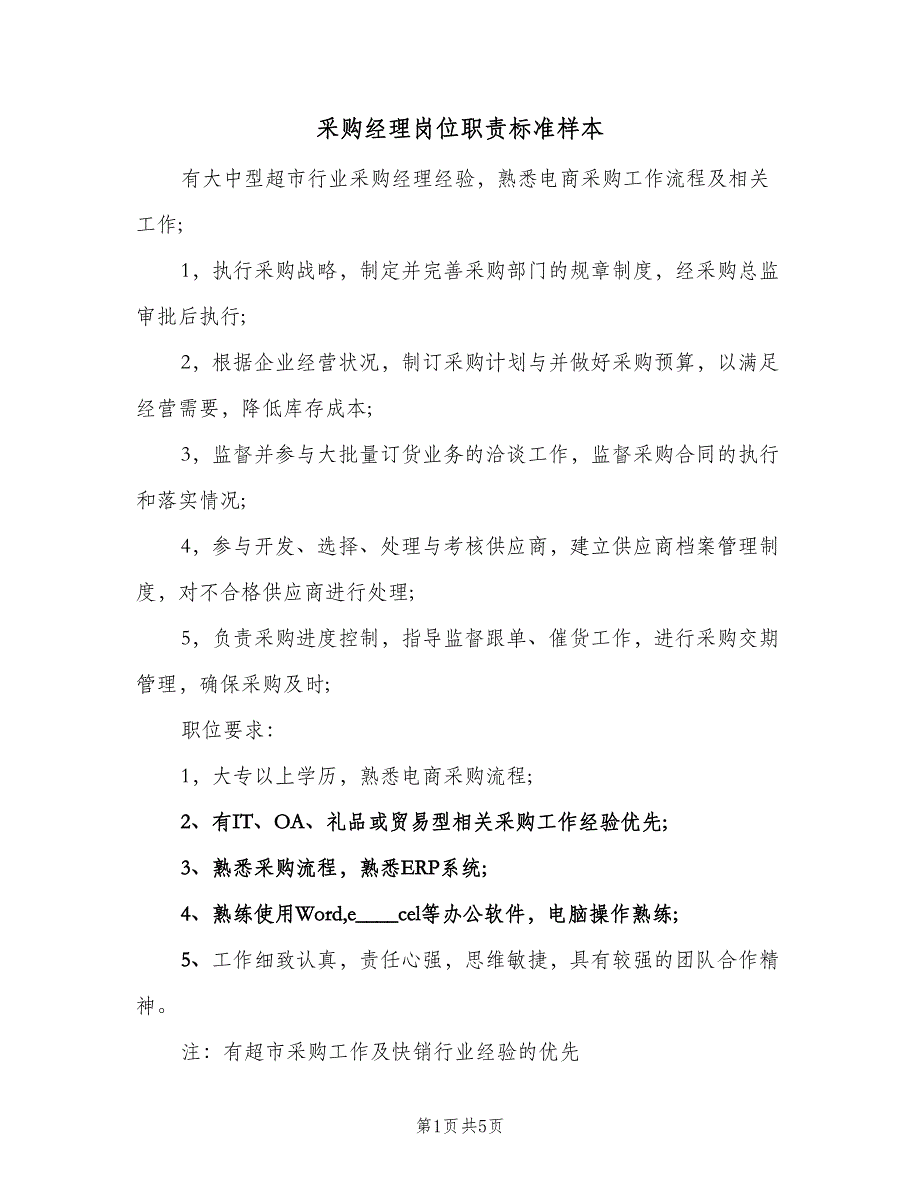 采购经理岗位职责标准样本
有大中型超市行业采购经理经验，熟悉电商采购工作流程及相关
工作;
1，执行采购战略，制定并完善采购部门的规章制度，经采购总监
审批后执行;
2，根据企业经营状况，制订采购计划与并做好采购预算，以满足
经营需要，降低库存成本;
3，监督并参与大批量订货业务的洽谈工作，监督采购合同的执行
和落实情况;
4，参与开发、选择、处理与考核供应商，建立供应商档案管理制
度，对不合格供应商进行处理;
5，负责采购进度控制，指导监督跟单、催货工作，进行采购交期
管理，确保采购及时;
职位要求：
1，大专以上学历，熟悉电商采购流程;
2、有IT、OA、礼品或贸易型相关采购工作经验优先;
3、熟悉采购流程，熟悉ERP系统;
4、熟练使用Word,e____cel等办公软件，电脑操作熟练;
5、工作细致认真，责任心强，思维敏捷，具有较强的团队合作精
神。
注：有超市采购工作及快销行业经验的优先
第1页 共5页